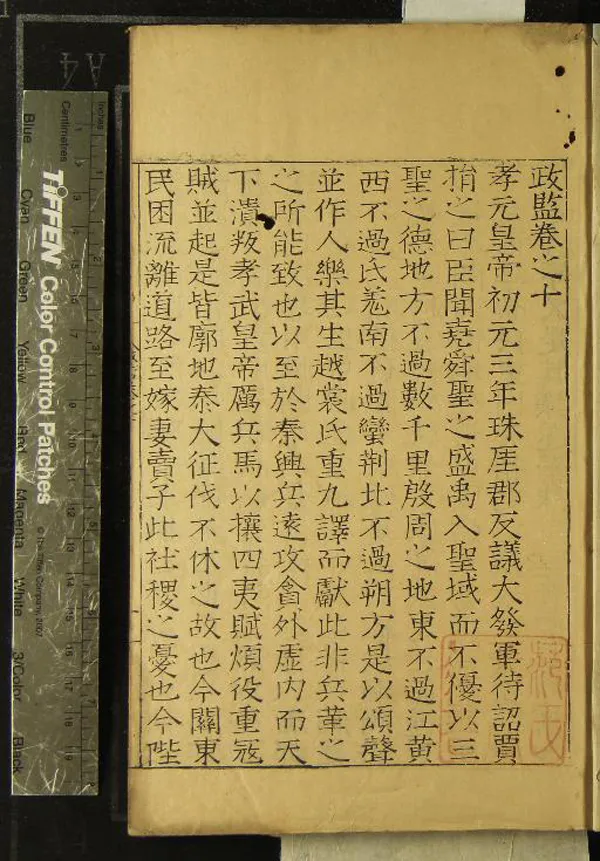 政監卷之十
孝元皇帝初元三年珠厓郡反議大發軍待詔賈
捎之曰臣聞堯舜聖之盛禹入聖域而不優以三
聖之德地方不過數千里殷周之地東不過江黃
西不過氐羗南不過蠻荆北不過朔方是以頌聲
並作人樂其生越裳氏重九譯而獻此非兵革之
之所能致也以至於秦興兵遠攻貪外虛内而天
下潰叛孝武皇帝厲兵馬以攘四夷賦煩役重寇
賊並起是皆廓地泰大征伐不休之故也今關東
民困流離道路至嫁妻賣子此社稷之憂也今陛
TIFFEN Color Control Patches
© The Tiffen Company, 2007
Inches
Centimetres
Blue
Cyan
Green
Yellow
Red
Magenta
White
3/Color
Black
A4